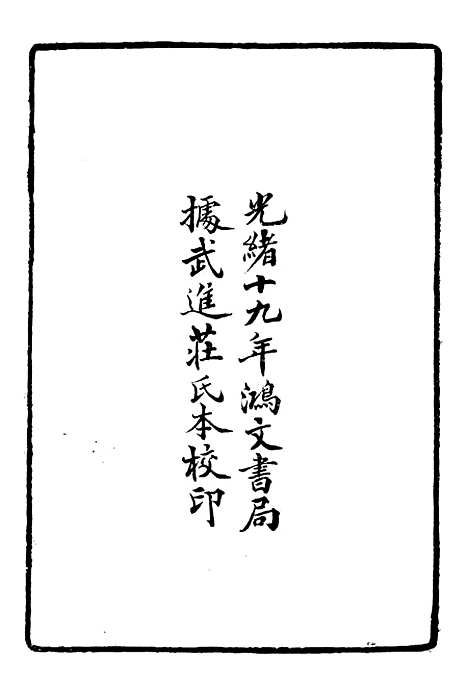 光緒十九年鴻文書局
據武進莊氏本校印